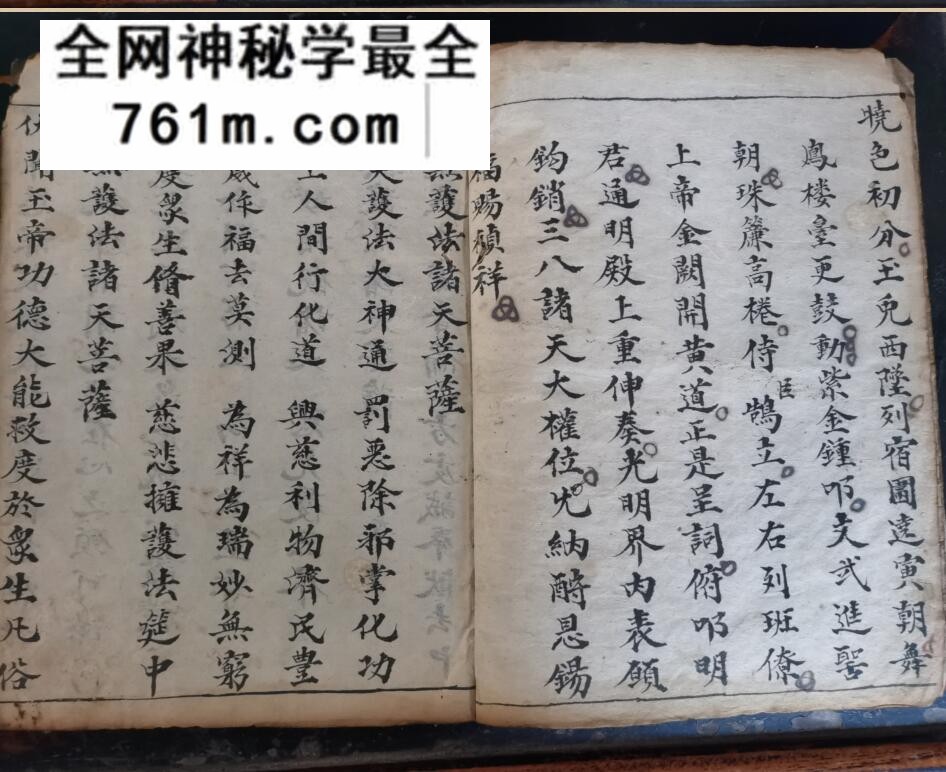 全网神秘学最全
761m.com
曉色初分玉兎西陞列宿圍遶寅朝舞
鳳楼臺更鼓動紫金鍾叩文武進聖
朝珠簾高捲侍臣鵠立左右列班僚
上帝金闕開黄道正是呈詞俯叩明
君通明殿上重伸奏光明界内表願
鈎銷三八諸天大權位允納酧恩錫
福賜禎祥
護法諸天菩薩
天護法大神通 罰惡除邪掌化功
人間行化道 興慈利物濟民豊
威作福去莫測 為祥為瑞妙無窮
度衆生脩善果 慈悲擁護法筵中
護法諸天菩薩
伏聞玉帝功德大能救度於衆生凡俗